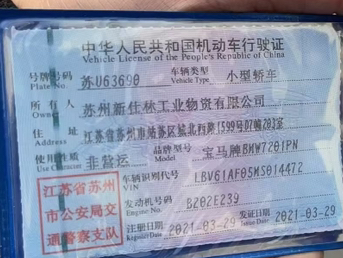 中华人民共和国机动车行驶证
Vehicle License of the People's Republic of China
号牌号码 Plate No. 苏U63690 车辆类型 Vehicle Type 小型轿车
所有人 Owner 苏州新仕林工业物资有限公司
住址 Address 江苏省苏州市姑苏区城北西路1599号D7幢203室
使用性质 Use Character 非营运 品牌型号 Model 宝马牌BMW7201PN
江苏省苏州市公安局交通警察支队
车辆识别代号 VIN LBV61AF05MS014472
发动机号码 Engine No. BZ02E239
注册日期 Register Date 2021-03-29 发证日期 Issue Date 2021-03-29